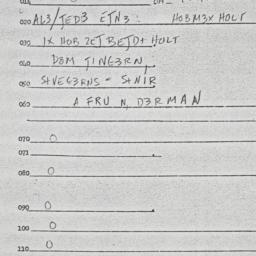 020 AL3/TED3 ETN3: HOBM3X HOLT
030 1X HOB 2ET BETD+ HOLT
040 D3M TINGERN,
050 S+VEGERNS - S+NIR
060 A FRU N, D3RMAN
070 O
071
080 O
090 O
100 O
110 O